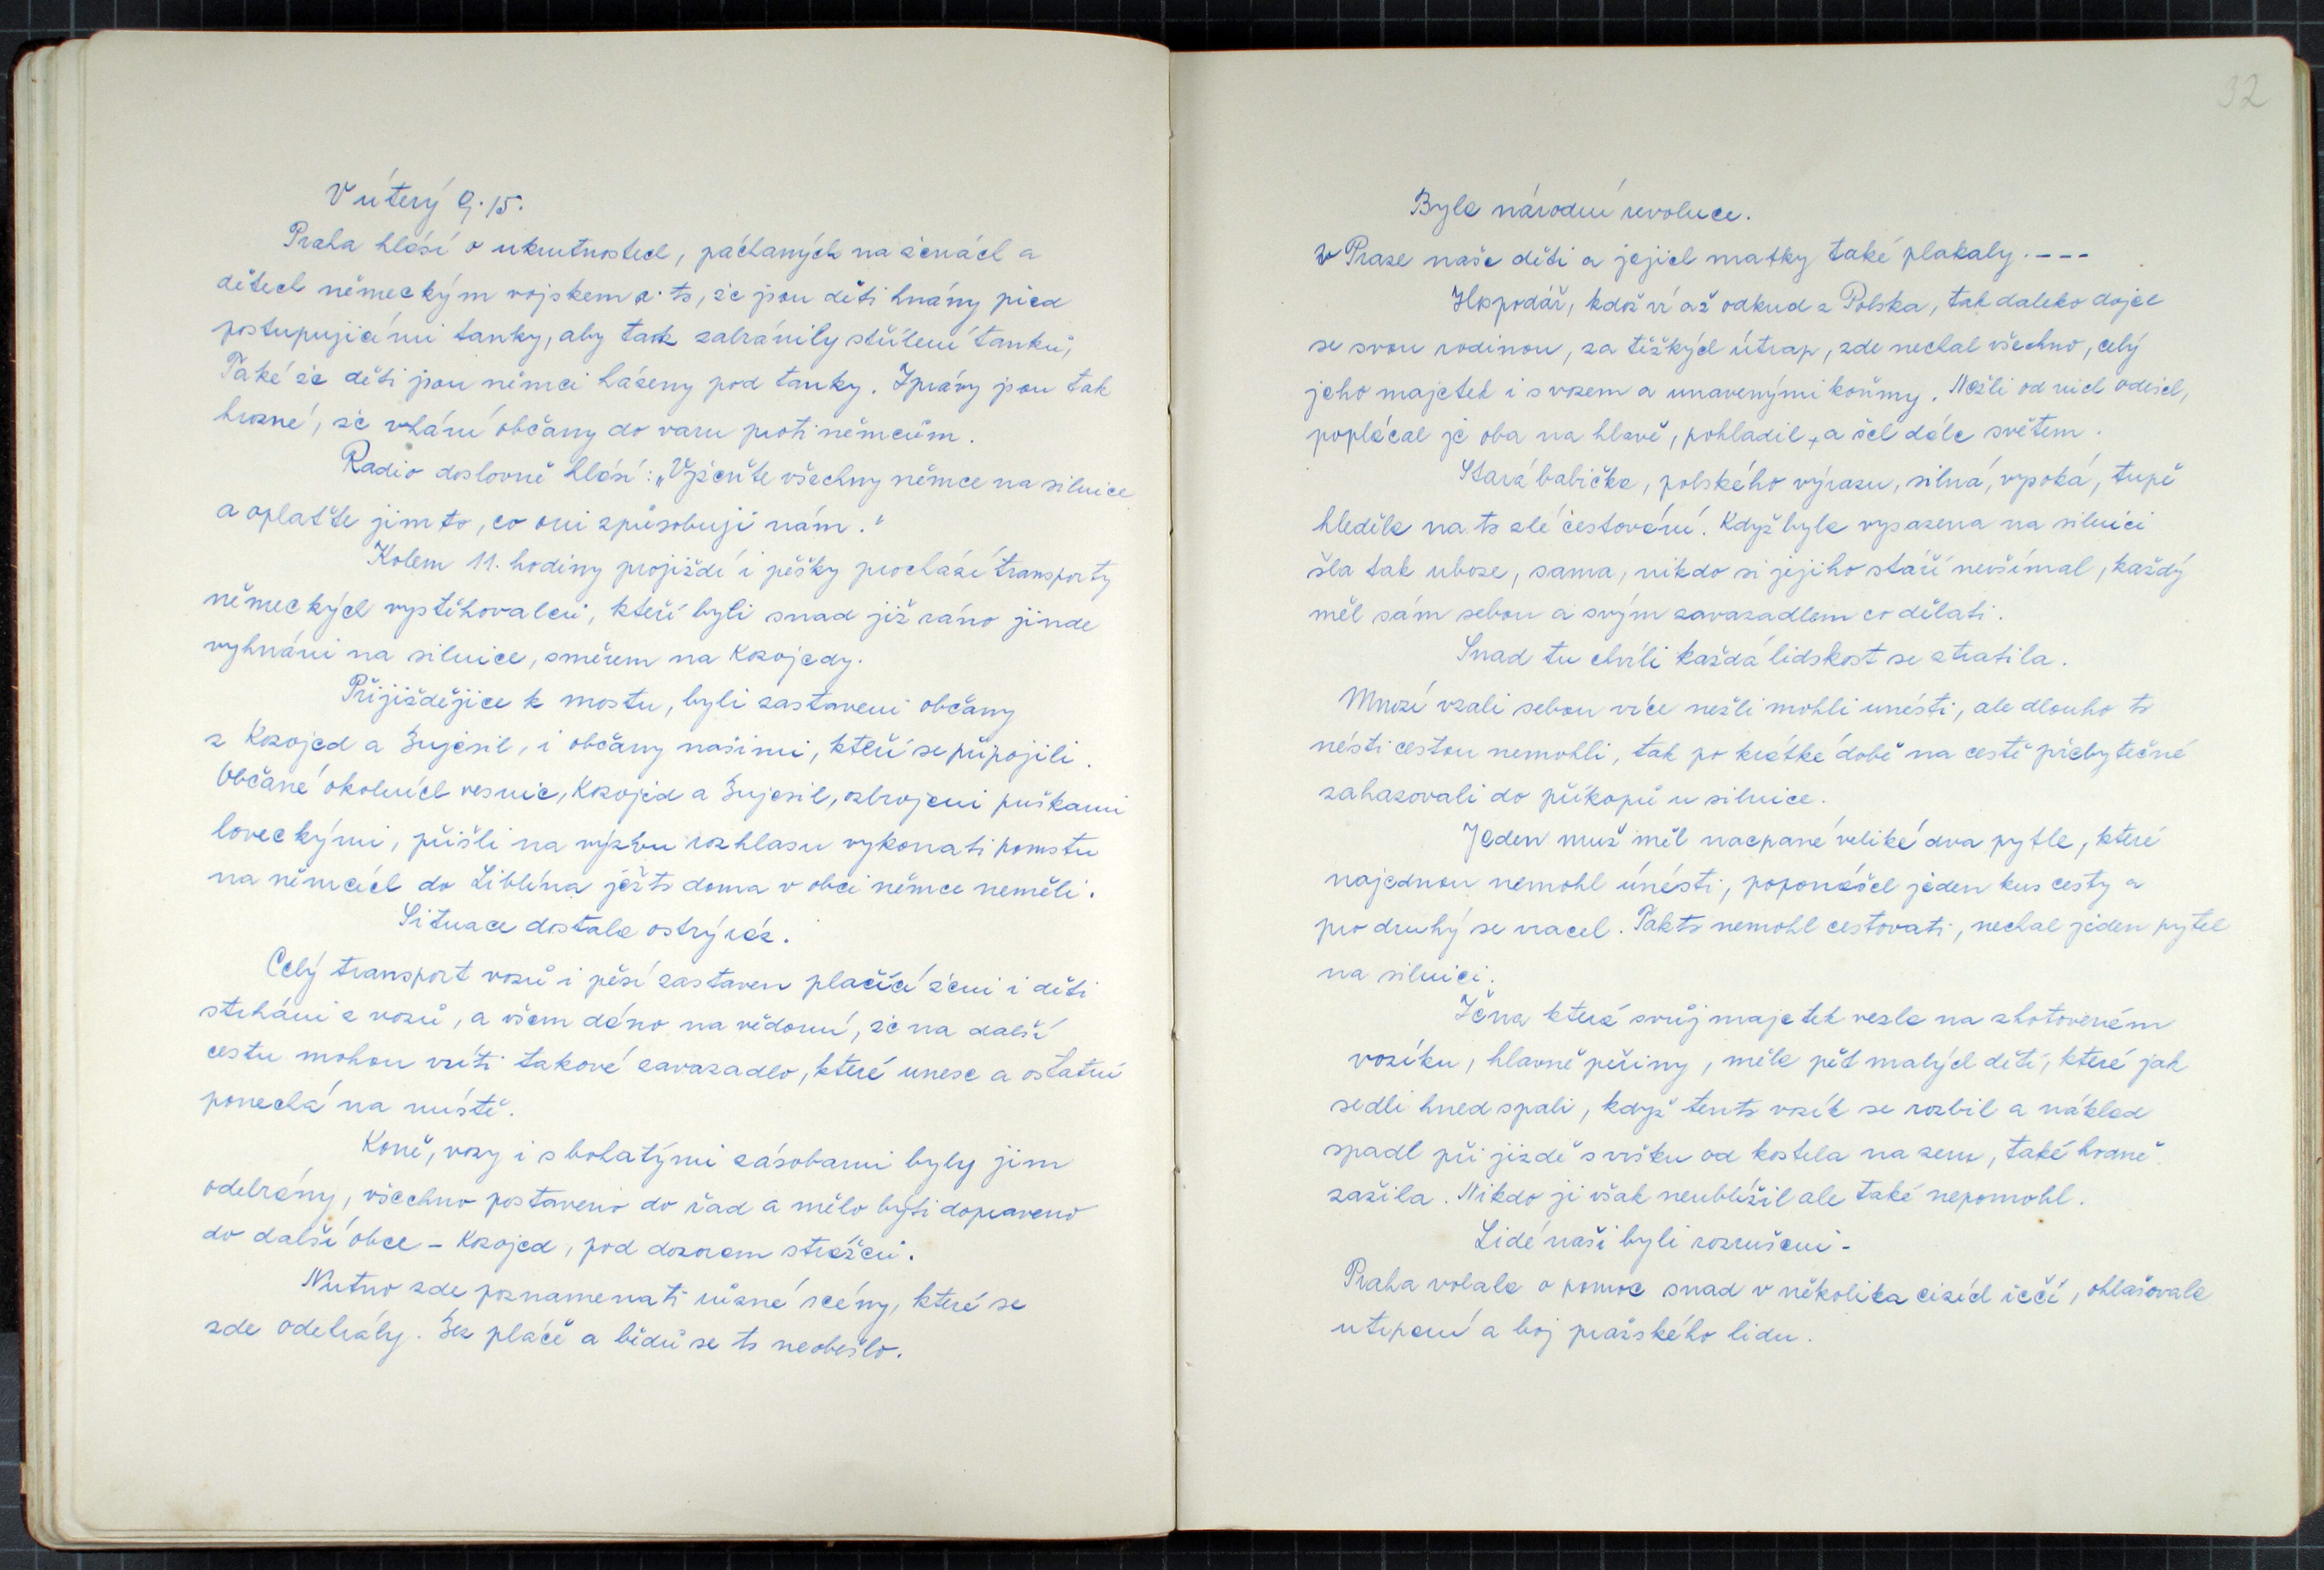 V úterý 9.15.
Praha hlásí o ukrutnostech, páchaných na ženách a
dětech německým vojskem a to, že jsou děti hnány před
postupujícími tanky, aby tak zabránily střílení tanků,
Také že děti jsou němci házeny pod tanky. Zprávy jsou tak
hrozné, že vhání občany do varu proti němcům.
Radio doslovně hlásí: „Vyžeňte všechny němce na silnice
a oplaťte jim to, co oni způsobují nám."
Kolem 11. hodiny projíždí i pěšky prochází transporty
německých vystěhovalců, kteří byli snad již ráno jinde
vyhnáni na silnice, směrem na Kozojedy.
Přijíždějíce k mostu, byli zastaveni občany
z Kozojed a Bujesil, i občany našimi, kteří se připojili.
Občané okolních vesnic, Kozojed a Bujesil, ozbrojeni puškami
loveckými, přišli na výzvu rozhlasu vykonati pomstu
na němcích do Liblína ježto doma v obci němce neměli.
Situace dostala ostrý ráz.
Celý transport vozů i pěší zastaven plačící ženi i děti
strháni z vozů, a všem dáno na vědomí, že na další
cestu mohou vzíti takové zavazadlo, které unese a ostatní
ponechá na místě.
Koně, vozy i s bohatými zásobami byly jim
odebrány, všechno postaveno do řad a mělo býti dopraveno
do další obce – Kozojed, pod dozorem strážců.
Nutno zde poznamenati různé scény, které se
zde odehrály. Bez pláče a bědů se to neobešlo.
32
Byla národní revoluce.
v Praze naše děti a jejich matky také plakaly.----
Hospodář, kdož ví až odkud z Polska, tak daleko dojel
se svou rodinou, za těžkých útrap, zde nechal všechno, celý
jeho majetek i s vozem a unavenými koňmy. Nežli od nich odešel,
poplácal je oba na hlavě, pohladil, a šel dále světem.
Stará babička, polského výrazu, silná, vysoká, tupě
hleděla na to zlé cestování. Když byla vysazena na silnici
šla tak uboze, sama, nikdo si jejiho stáří nevšímal, každý
měl sám sebou a svým zavazadlem co dělati.
Snad tu chvíli každá lidskost se ztratila.
Mnozí vzali sebou více nežli mohli unésti, ale dlouho to
nésti cestou nemohli, tak po krátké době na cestě přebytečné
zahazovali do příkopů u silnice.
Jeden muž měl nacpané veliké dva pytle, které
najednou nemohl únésti, poponášel jeden kus cesty a
pro druhý se vracel. Takto nemohl cestovati, nechal jeden pytel
na silnici.
Žena která svůj majetek vezla na zhotoveném
vozíku, hlavně peřiny, měla pět malých dětí, které jak
sedli hned spali, když tento vozík se rozbil a náklad
spadl při jízdě s vršku od kostela na zem, také hrozně
zažila. Nikdo ji však neublížil ale také nepomohl.
Lidé naši byli rozrušeni –
Praha volala o pomoc snad v několika cizích řečí, ohlašovala
utrpení a boj pražského lidu.